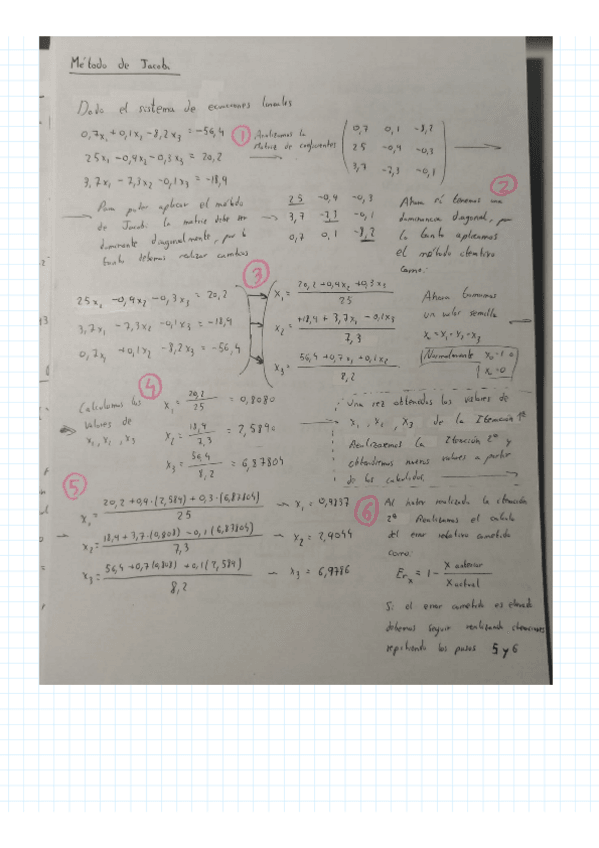 Método de Jacobi
Dado el sistema de ecuaciones lineales
0,7x₁ + 0,1x₂ - 8,2x₃ = -56,4
25x₁ - 0,4x₂ - 0,3x₃ = 20,2
3,7x₁ - 7,3x₂ - 0,1x₃ = -18,4
① Analizamos la
Matriz de coeficientes
0,7 0,1 -8,2
25 -0,4 -0,3
3,7 -7,3 -0,1
Para poder aplicar el método
de Jacobi la matriz debe ser
dominante diagonalmente, por lo
tanto debemos realizar cambios
25 -0,4 -0,3
3,7 -7,3 -0,1
0,7 0,1 -8,2
②
Ahora sí tenemos una
dominancia diagonal, por
lo tanto aplicamos
el método iterativo
como:
③
25x₁ - 0,4x₂ - 0,3x₃ = 20,2
3,7x₁ - 7,3x₂ - 0,1x₃ = -18,4
0,7x₁ + 0,1x₂ - 8,2x₃ = -56,4
x₁ = 20,2 + 0,4x₂ + 0,3x₃ / 25
x₂ = +18,4 + 3,7x₁ - 0,1x₃ / 7,3
x₃ = 56,4 + 0,7x₁ + 0,1x₂ / 8,2
Ahora tomamos
un valor semilla
x₀ = x₁ = x₂ = x₃
Normalmente x₀ = 1 o
x₀ = 0
④
Calculamos los
valores de
x₁, x₂, x₃
x₁ = 20,2 / 25 = 0,8080
x₂ = 18,4 / 7,3 = 2,5890
x₃ = 56,4 / 8,2 = 6,87804
Una vez obtenidos los valores de
x₁, x₂, x₃ de la Iteración 1ª
Realizaremos la Iteración 2ª y
obtendremos nuevos valores a partir
de los calculados
⑤
x₁ = 20,2 + 0,4·(2,589) + 0,3·(6,87804) / 25 x₁ = 0,9317
x₂ = 18,4 + 3,7·(0,808) - 0,1(6,87804) / 7,3 x₂ = 2,9044
x₃ = 56,4 + 0,7(0,808) + 0,1(2,589) / 8,2 x₃ = 6,9786
⑥
Al haber realizado la iteración
2ª Realizamos el calculo
del error relativo cometido
como:
Erₓ = 1 - x anterior / x actual
Si el error cometido es elevado
debemos seguir realizando iteraciones
repitiendo los pasos 5 y 6